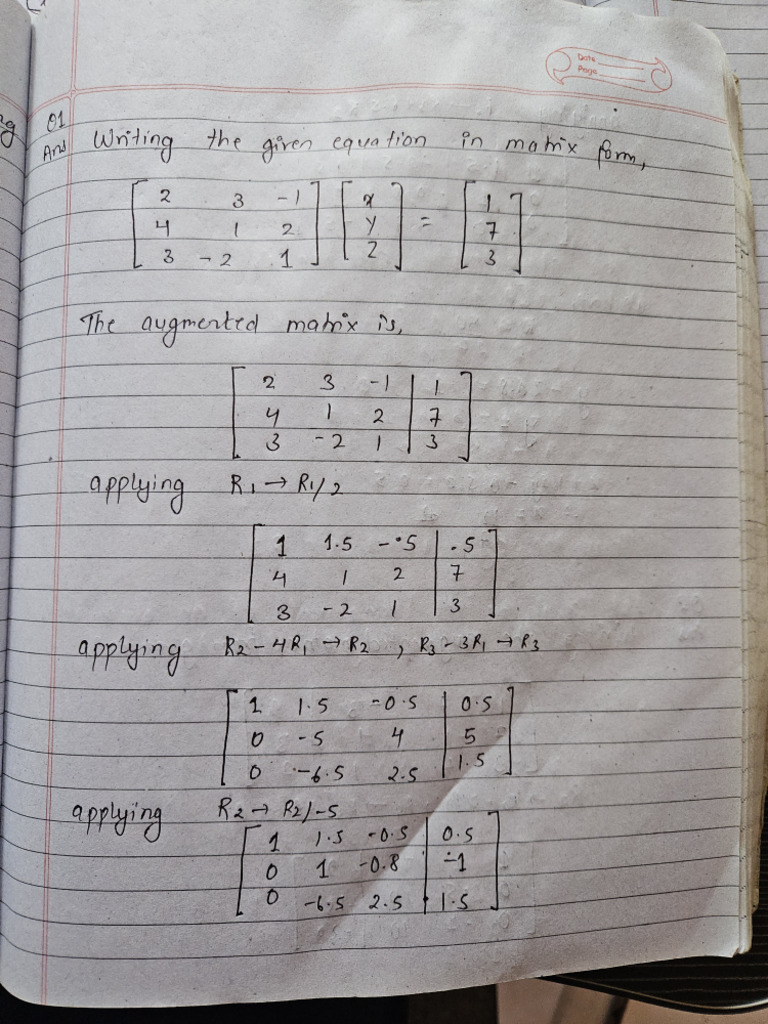 Date
Page
Q1
Ans Writing the given equation in matrix form,
[ 2 3 -1 ] [ x ] = [ 1 ]
[ 4 1 2 ] [ y ] [ 7 ]
[ 3 -2 1 ] [ z ] [ 3 ]
The augmented matrix is,
[ 2 3 -1 | 1 ]
[ 4 1 2 | 7 ]
[ 3 -2 1 | 3 ]
applying R1 → R1/2
[ 1 1.5 -.5 | .5 ]
[ 4 1 2 | 7 ]
[ 3 -2 1 | 3 ]
applying R2 - 4R1 → R2 , R3 - 3R1 → R3
[ 1 1.5 -0.5 | 0.5 ]
[ 0 -5 4 | 5 ]
[ 0 -6.5 2.5 | 1.5 ]
applying R2 → R2/-5
[ 1 1.5 -0.5 | 0.5 ]
[ 0 1 -0.8 | -1 ]
[ 0 -6.5 2.5 | 1.5 ]